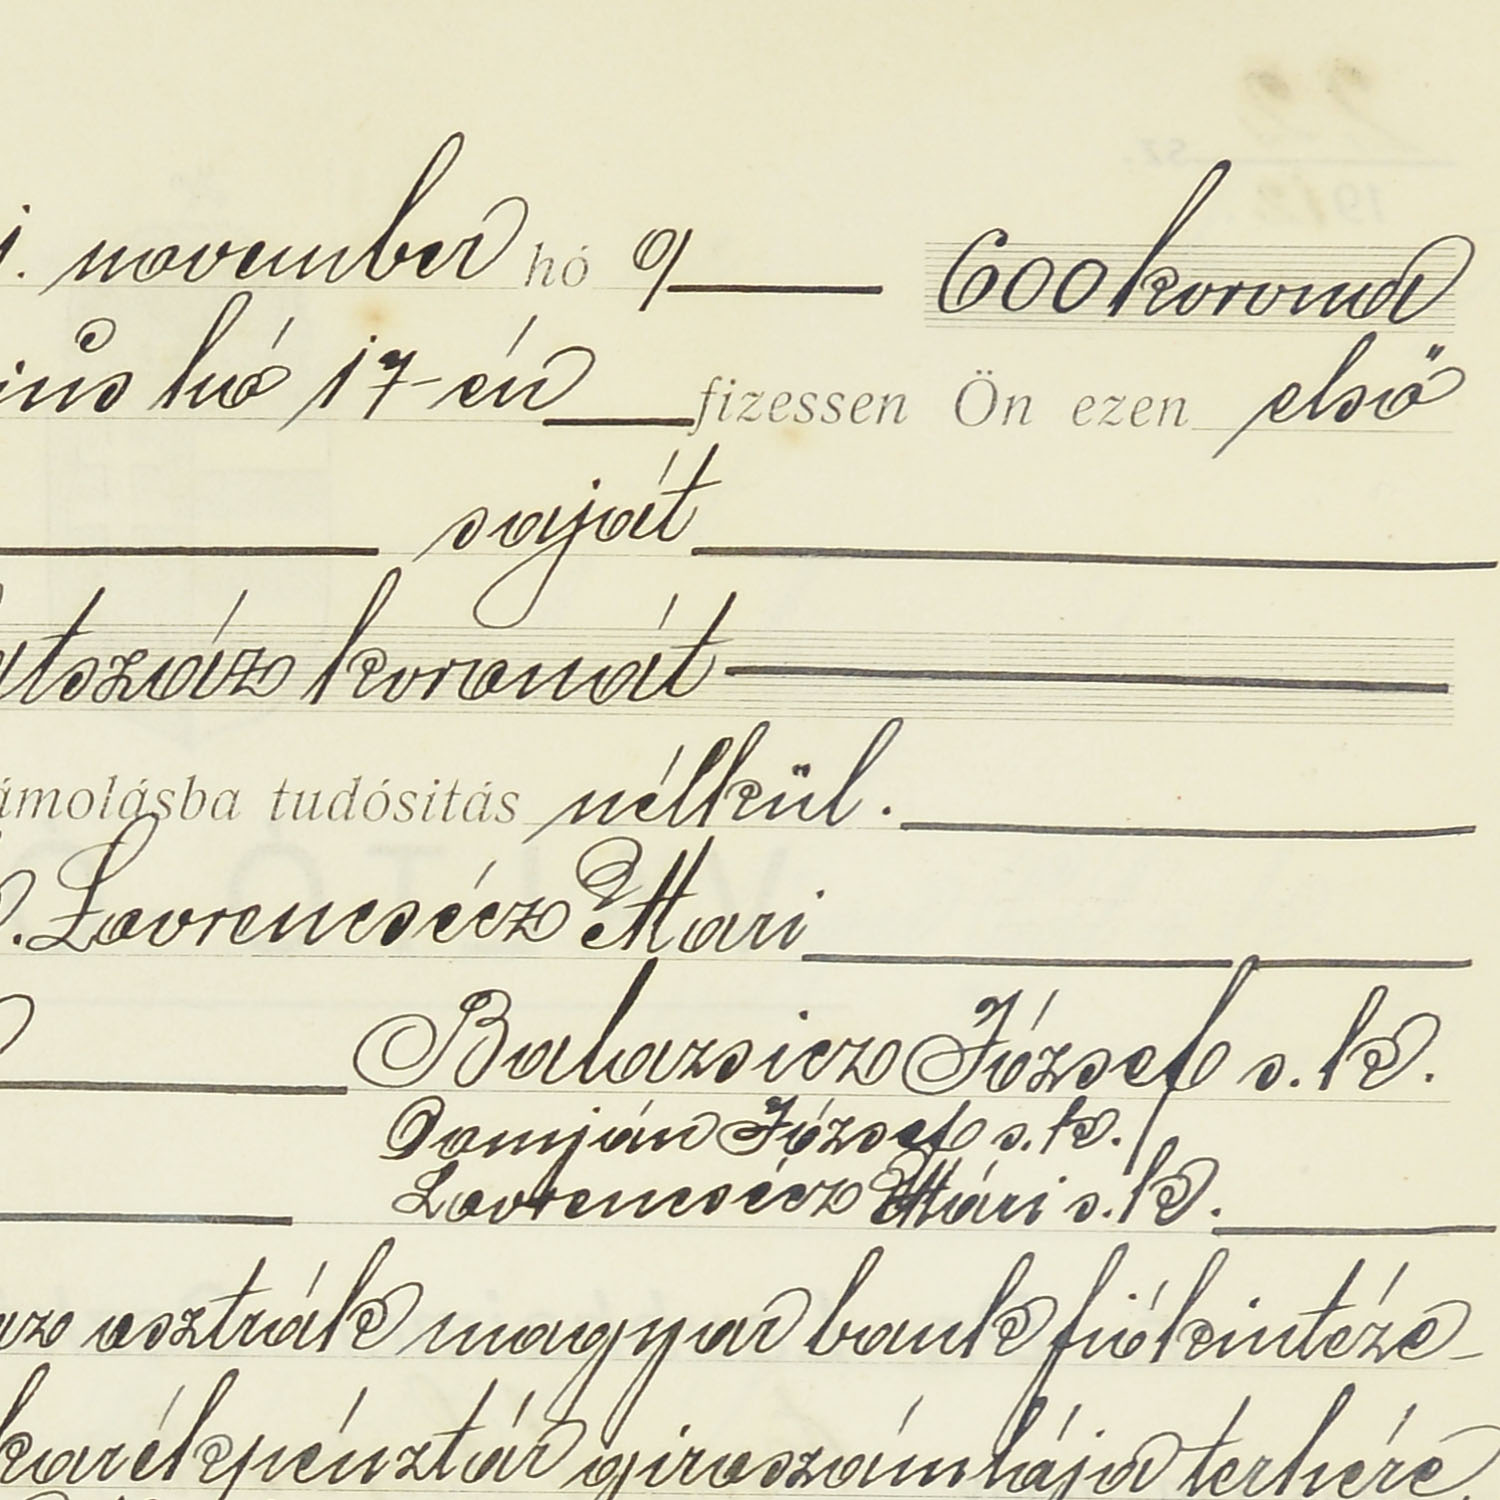 november hó 9 600 korona
hó 17-én fizessen Ön ezen első
saját
koronát
tudósitás nélkül.
Lavrencsécz Mari
Balazsicz József s. k.
Domján József s. k.
Lavrencsécz Mári s. k.
az osztrák magyar bank fiókintéze-
karékpénztár giroszámlája terhére.